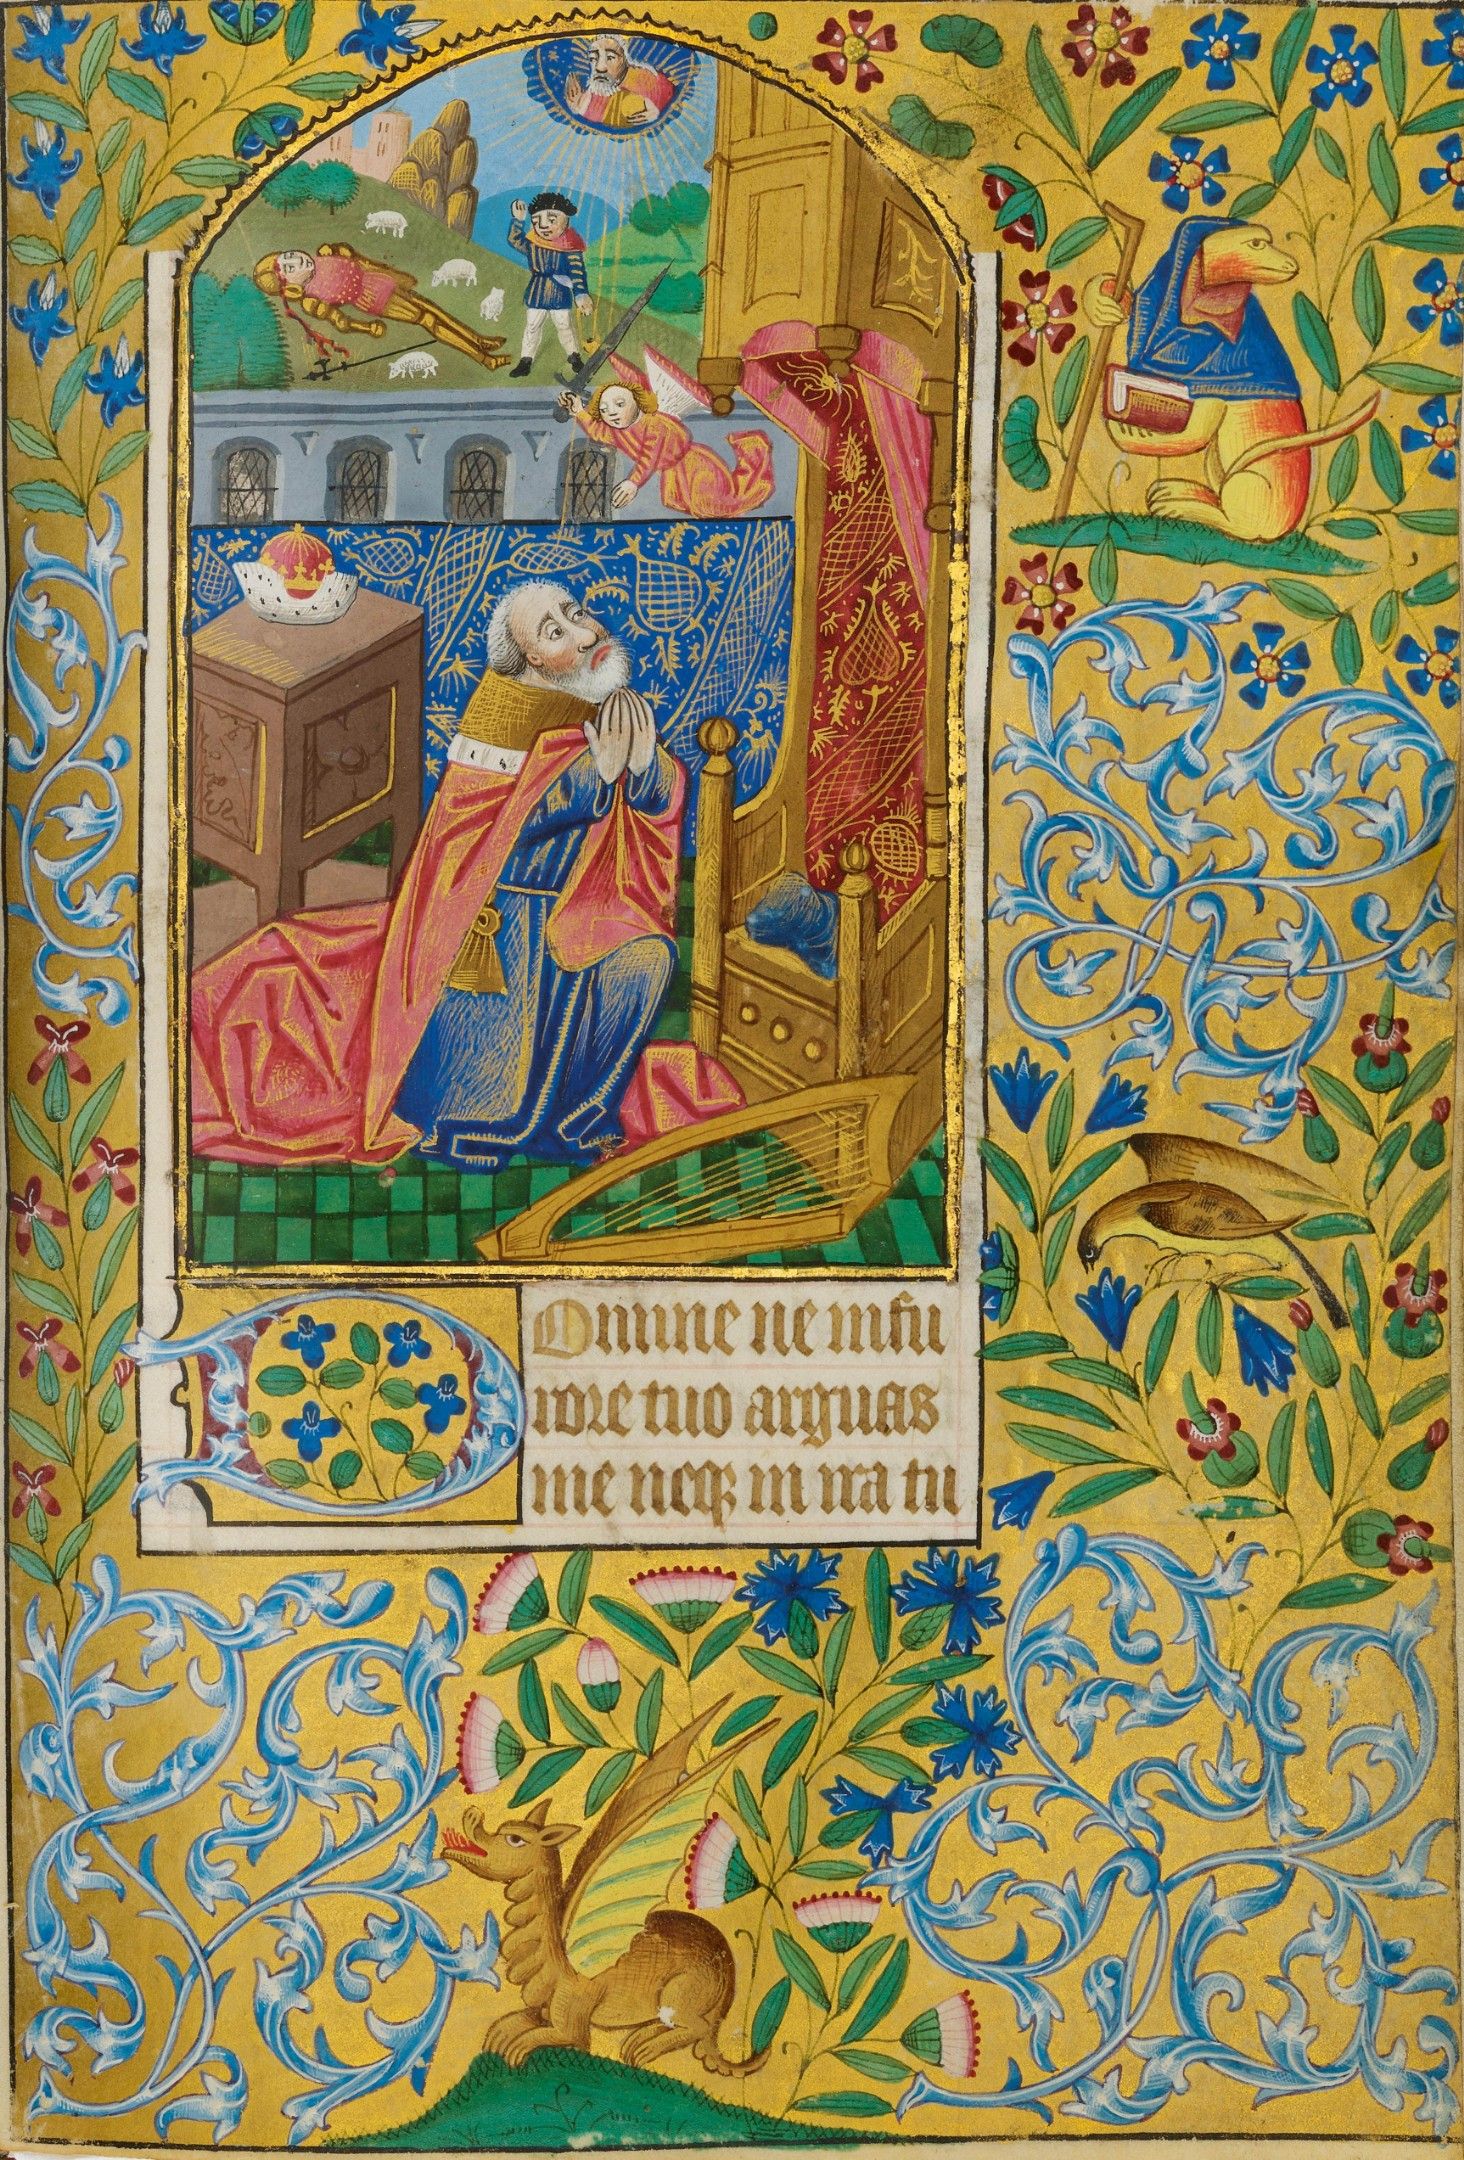 Domine ne in fu
rore tuo arguas
me neqꝫ in ira tu